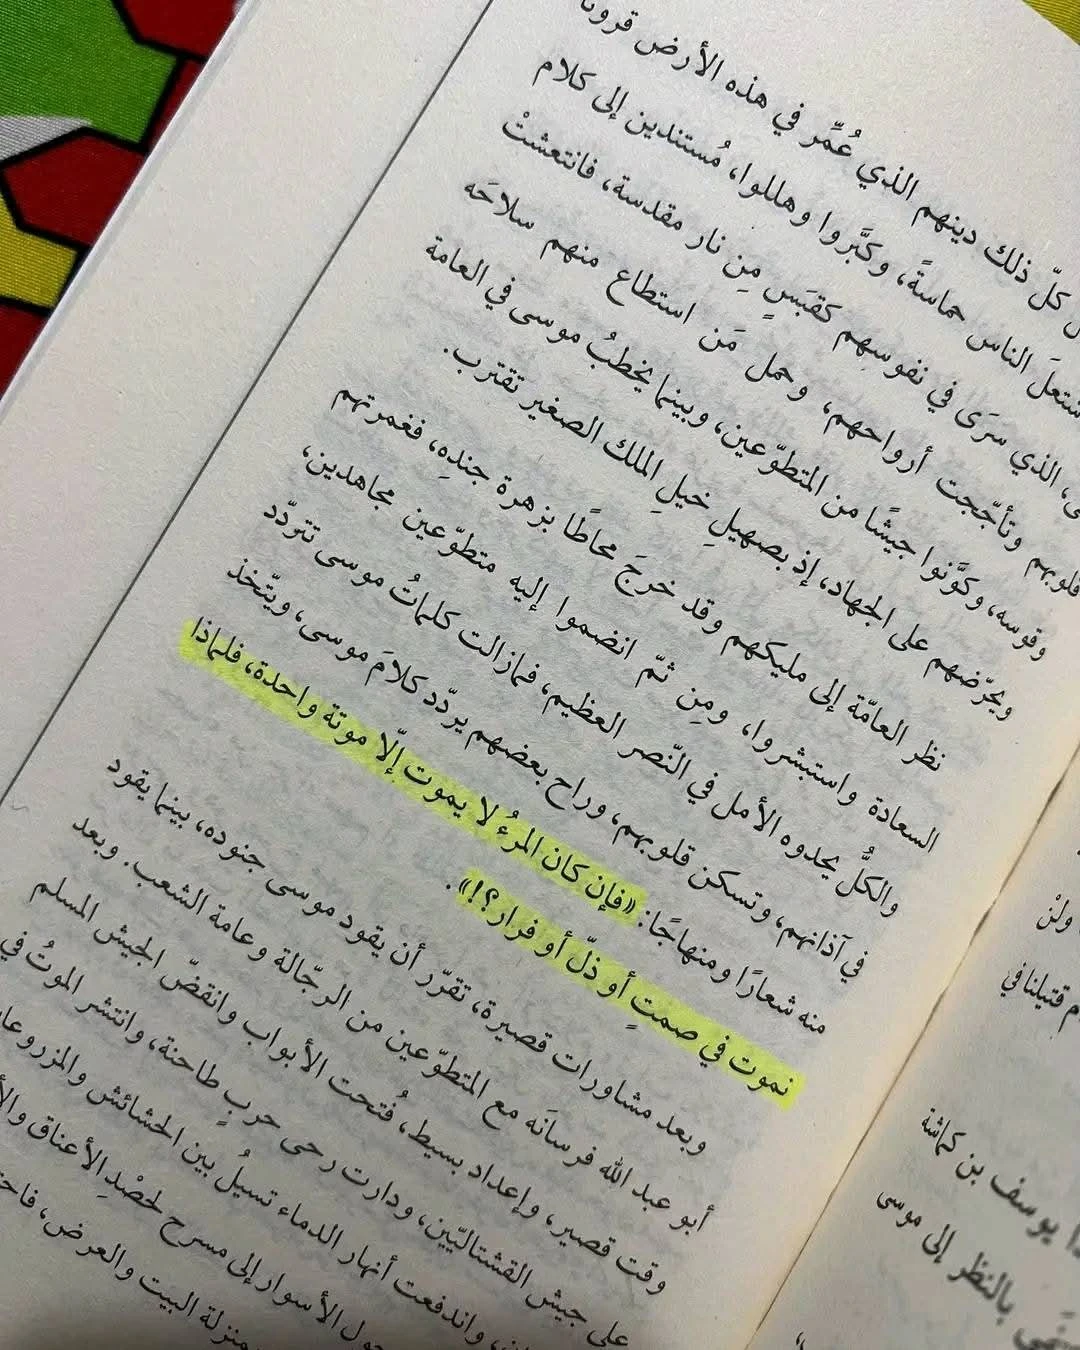 الذي عُمِّر في هذه الأرض قرونًا
كلّ ذلك دينهم
الناس حماسةً، وكبَّروا وهللوا، مُستندين إلى كلام
الذي سرَى في نفوسِهم كقبَسٍ مِن نار مقدسة، فانتعشتْ
قلوبهم وتأجّجت أرواحهم، وحمل مَن استطاع منهم سلاحَه
وقوسه، وكوَّنوا جيشًا من المتطوّعين، وبينما يخطبُ موسى في العامة
ويحرّضهم على الجهاد، إذ بصهيلِ خيلِ الملك الصغير تقترب.
نظر العامّة إلى مليكهم وقد خرجَ محاطًا بزهرة جندِه، فغمرتهم
السعادة واستبشروا، ومِن ثمّ انضموا إليه متطوّعين مجاهدين،
والكلُّ يحدوه الأمل في النّصر العظيم، فمازالت كلماتُ موسى تتردّد
في آذانهم، وتسكن قلوبهم، وراح بعضهم يردّد كلامَ موسى، ويتّخذ
منه شعارًا ومنهاجًا: «فإن كان المرءُ لا يموت إلّا موتة واحدة، فلماذا
نموت في صمتٍ أو ذلّ أو فرار؟!».
وبعد مشاورات قصيرة، تقرّر أن يقود موسى جنوده، بينما يقود
أبو عبد الله فرسانَه مع المتطوّعين من الرجّالة وعامة الشعب. وبعد
وقت قصير، وإعداد بسيط، فُتحت الأبواب وانقضّ الجيش المسلم
على جيش القشتاليّين، ودارت رحى حربٍ طاحنة، وانتشر الموتُ في
واندفعت أنهار الدماء تسيلُ بين الحشائش والمزروعات
الأسوار إلى مسرح لحصْدِ الأعناق
منزلة البيت والعرض،
ولنْ
قتيلنا في
يوسف بن كماشة
بالنظر إلى موسى